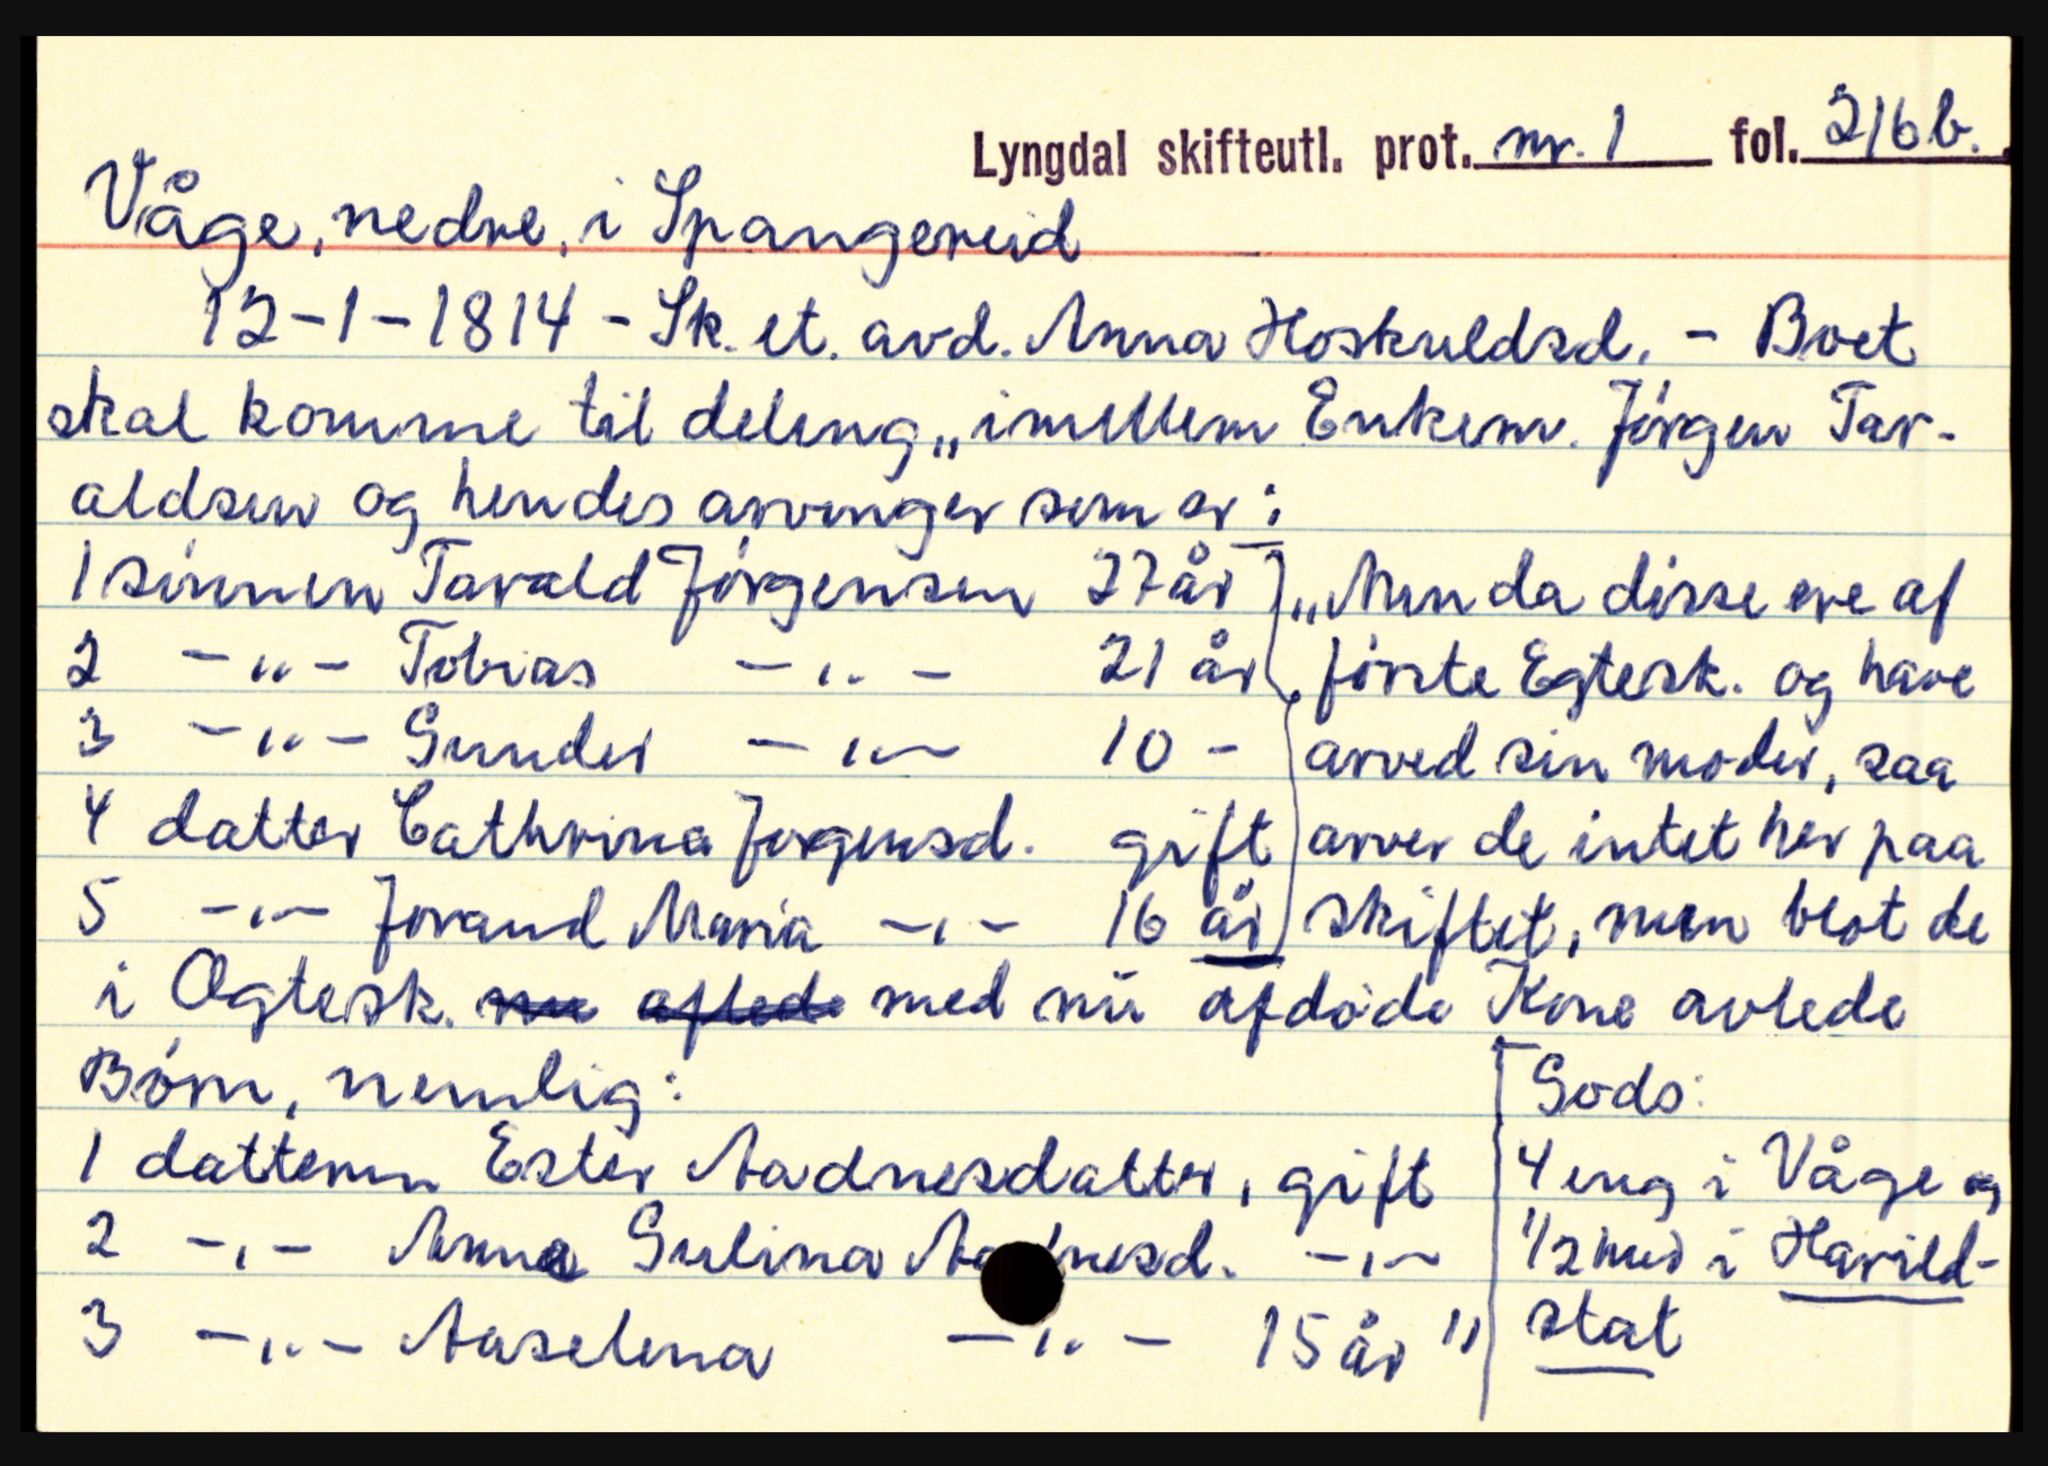 Lyngdal skifteutl. prot. nr. 1 fol. 216 b.
Våge, nedre, i Spangereid
12-1-1814 - Sk. et. avd. Anna Hoskuldsd. - Boet
skal komme til deling „imellem Enkem. Jörgen Tar-
aldsen og hendes arvinger som er:
1 sönnen Tarald Jörgensen 27 år
2 -„- Tobias -„- 21 år
3 -„- Gunder -„- 10 -
4 datter Cathrina Jorgensd. gift
5 -„- Jorand Maria -„- 16 år
„Men da disse ere af
förste Egtesk. og have
arved sin moder, saa
arver de intet her paa
skiftet, men blot de
i Ægtesk. nu aflede med nu afdöde Kone avlede
Börn, nemlig:
1 datteren Ester Aadnesdatter, gift
2 -„- Anna Gulina Aadnesd. -„-
3 -„- Aaselena -„- 15 år "
Gods:
4 eng i Våge og
1/2 hud i Harild-
stat